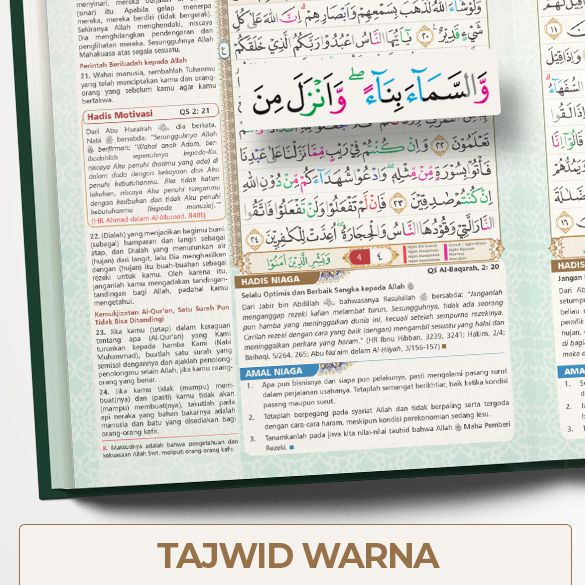 menyinari, mereka berjalan di
(sinar) itu. Apabila gelap menerpa
mereka, mereka berdiri (tidak bergerak).
Sekiranya Allah menghendaki, niscaya
Dia menghilangkan pendengaran dan
penglihatan mereka. Sesungguhnya Allah
Mahakuasa atas segala sesuatu.
Perintah Beribadah kepada Allah
21. Wahai manusia, sembahlah Tuhanmu
yang telah menciptakan kamu dan orang-
orang yang sebelum kamu agar kamu
bertakwa.
Hadis Motivasi QS 2: 21
Dari Abu Hurairah, dia berkata,
Nabi ﷺ bersabda: "Sesungguhnya Allah
berfirman: 'Wahai anak Adam, ber-
ibadahlah sepenuhnya kepada-Ku,
niscaya Aku penuhi (hatimu yang ada) di
dalam dada dengan kekayaan dan Aku
penuhi kebutuhanmu. Jika tidak kalian
lakukan, niscaya Aku penuhi tanganmu
dengan kesibukan dan tidak Aku penuhi
kebutuhanmu (kepada manusia).'"
(HR Ahmad dalam Al-Musnad, 8481)
22. (Dialah) yang menjadikan bagimu bumi
(sebagai) hamparan dan langit sebagai
atap, dan Dialah yang menurunkan air
(hujan) dari langit, lalu Dia menghasilkan
dengan (hujan) itu buah-buahan sebagai
rezeki untuk kamu. Oleh karena itu,
janganlah kamu mengadakan tandingan-
tandingan bagi Allah, padahal kamu
mengetahui.
Kemukjizatan Al-Qur'an, Satu Surah Pun
Tidak Bisa Ditandingi
23. Jika kamu (tetap) dalam keraguan
tentang apa (Al-Qur'an) yang Kami
turunkan kepada hamba Kami (Nabi
Muhammad), buatlah satu surah yang
semisal dengannya dan ajaklah penolong-
penolongmu selain Allah, jika kamu orang-
orang yang benar.
24. Jika kamu tidak (mampu) mem-
buat(nya) dan (pasti) kamu tidak akan
(mampu) membuat(nya), takutlah pada
api neraka yang bahan bakarnya adalah
manusia dan batu yang disediakan bagi
orang-orang kafir.
8. Maksudnya adalah bahwa pengetahuan dan
kekuasaan Allah Swt. meliputi orang-orang kafir.
وَلَوْ شَاۤءَ اللّٰهُ لَذَهَبَ بِسَمْعِهِمْ وَاَبْصَارِهِمْ ۗ اِنَّ اللّٰهَ عَلٰى كُلِّ
شَيْءٍ قَدِيْرٌ ٢٠ يٰٓاَيُّهَا النَّاسُ اعْبُدُوْا رَبَّكُمُ الَّذِيْ خَلَقَكُمْ
وَّالسَّمَاۤءَ بِنَاۤءً ۖ وَّاَنْزَلَ مِنَ
تَعْلَمُوْنَ ٢٢ وَاِنْ كُنْتُمْ فِيْ رَيْبٍ مِّمَّا نَزَّلْنَا عَلٰى عَبْدِنَا
فَأْتُوْا بِسُوْرَةٍ مِّنْ مِّثْلِهٖ ۖ وَادْعُوْا شُهَدَاۤءَكُمْ مِّنْ دُوْنِ اللّٰهِ
اِنْ كُنْتُمْ صٰدِقِيْنَ ٢٣ فَاِنْ لَّمْ تَفْعَلُوْا وَلَنْ تَفْعَلُوْا فَاتَّقُوا
النَّارَ الَّتِيْ وَقُوْدُهَا النَّاسُ وَالْحِجَارَةُ ۖ اُعِدَّتْ لِلْكٰفِرِيْنَ ٢٤
وَبَشِّرِ الَّذِيْنَ اٰمَنُوْا
4 ٤
QS Al-Baqarah, 2: 20
HADIS NIAGA
Selalu Optimis dan Berbaik Sangka kepada Allah
Dari Jabir bin Abdillah, bahwasanya Rasulullah ﷺ bersabda: "Janganlah
menganggap rezeki kalian melambat turun. Sesungguhnya, tidak ada seorang
pun hamba yang meninggalkan dunia ini, kecuali setelah sempurna rezekinya.
Carilah rezeki dengan cara yang baik (dengan) mengambil sesuatu yang halal dan
meninggalkan perkara yang haram." (HR Ibnu Hibban, 3239, 3241; Hakim, 2/4;
Baihaqi, 5/264, 265; Abu Nu'aim dalam Al-Hilyah, 3/156-157)
AMAL NIAGA
1. Apa pun bisnisnya dan siapa pun pelakunya, pasti mengalami pasang surut
dalam perjalanan usahanya. Tetaplah semangat berikhtiar, baik ketika kondisi
pasang maupun surut.
2. Tetaplah berpegang pada syariat Allah dan tidak berpaling serta tergoda
dengan cara-cara haram, meskipun kondisi perekonomian sedang lesu.
3. Tanamkanlah pada jiwa kita nilai-nilai tauhid bahwa Allah Maha Pemberi
Rezeki.
HADIS
Jangan
AMA
TAJWID WARNA